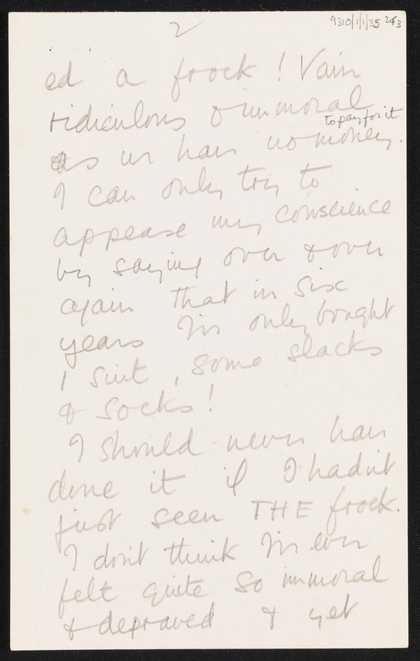 2
9310/1/1/35 2of3
ed a frock! Vain
ridiculous & immoral
to pay for it
as we have no money.
I can only try to
appease my conscience
by saying over & over
again that in six
years I've only bought
1 suit, some slacks
& socks!
I should never have
done it if I hadn't
just seen THE frock.
I don't think I've ever
felt quite so immoral
& depraved & yet